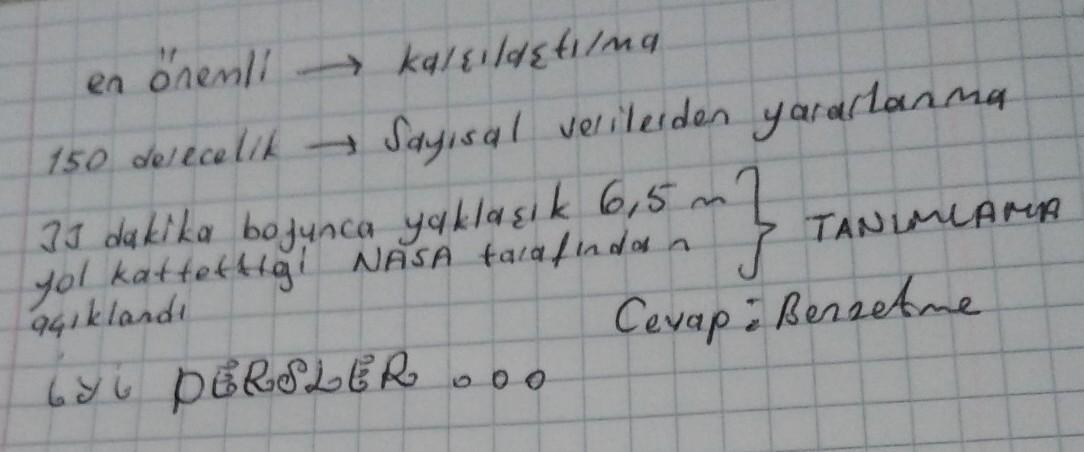 en önemli → karşılaştılma
150 derecelik → Sayısal verilerden yararlanma
33 dakika boyunca yaklaşık 6,5 m } TANIMLAMA
yol kattettigi NASA tarafından
açıklandı
Cevap : Benzetme
iyi DERSLER ...